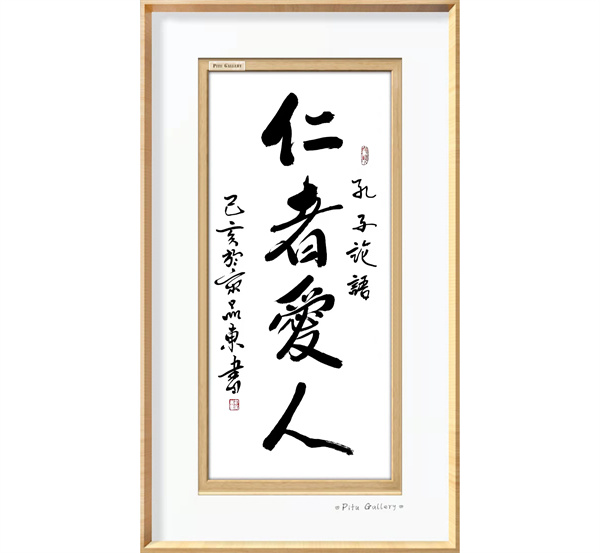 PITU GALLERY
孔子論語
仁者愛人
己亥於京品東書
Pitu Gallery